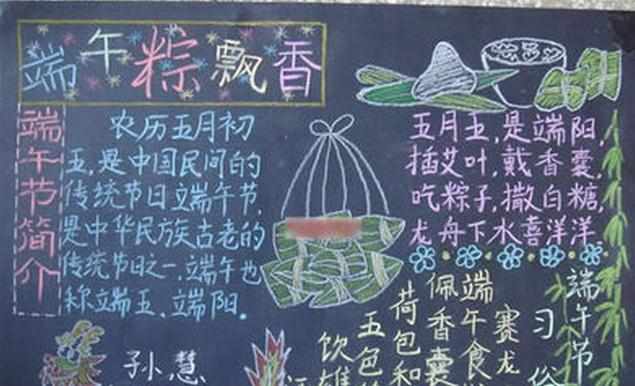 端午粽飘香
端午节简介
农历五月初
五,是中国民间的
传统节日端午节,
是中华民族古老的
传统节日之一.端午也
称端五.端阳.
五月五,是端阳,
插艾叶,戴香囊,
吃粽子,撒白糖,
龙舟下水喜洋洋
端午节
习俗
赛龙
端午食
佩香囊
荷包和
五包
饮雄
孙慧